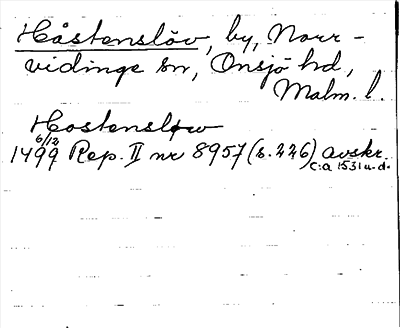 Håstenslöv, by, Norr-
vidinge sn, Onsjö hd,
Malm. l.
Hostensløw
6/12
1499 Rep. II nr 8957 (s. 226) avskr.
c:a 1531 u.d.